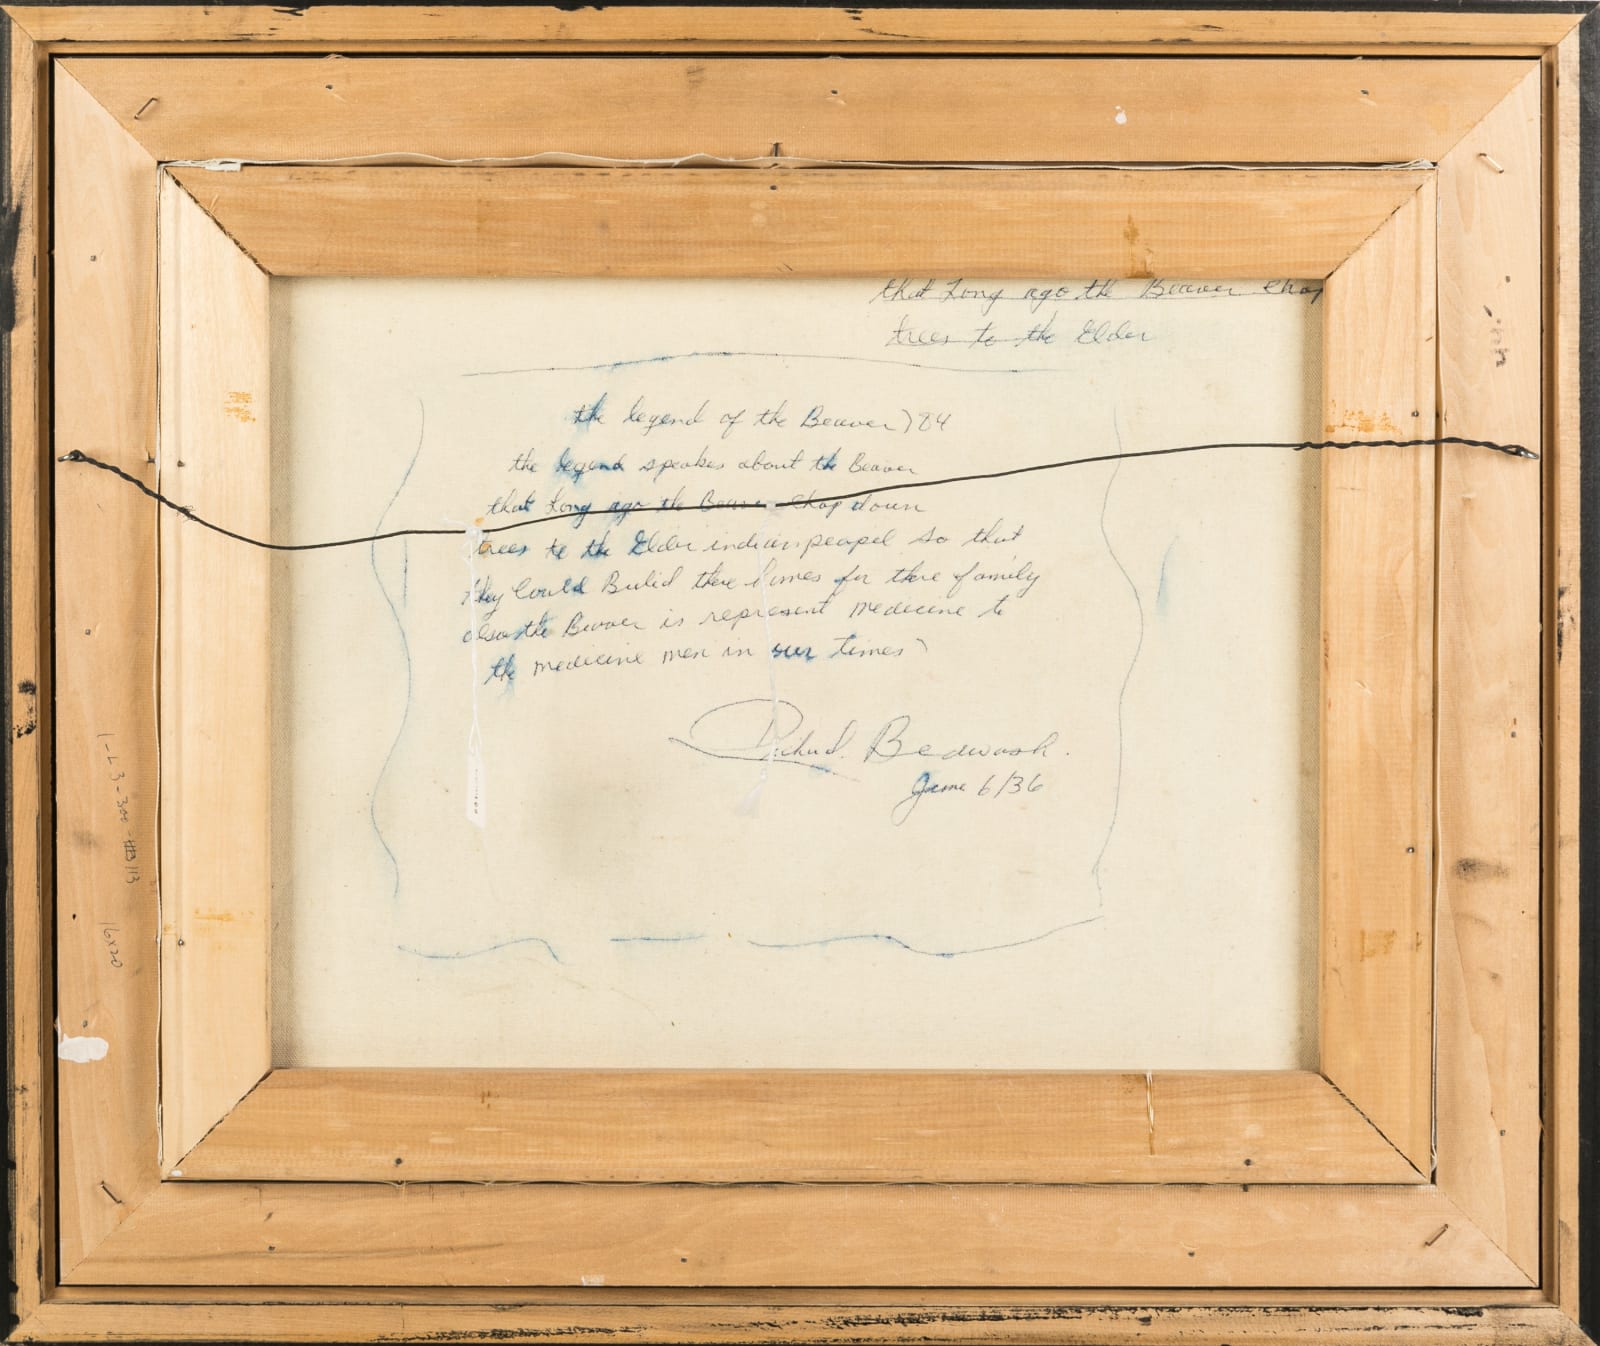 that Long ago the Beaver Chop
trees to the Elder
the legend of the Beaver) 84
the legend speakes about the Beaver
that Long ago the Beaver Chop down
trees to the Elder indian peapel so that
they Could Bulid there homes for there family
also the Beaver is represent medecine to
the medecine men in our times)
Richard Bedwash.
June 6/36
1-L3-300-
16x20